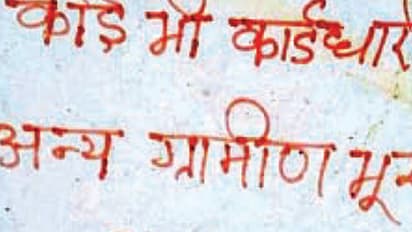 कोई भी कार्डधार
अन्य ग्रामीण भू